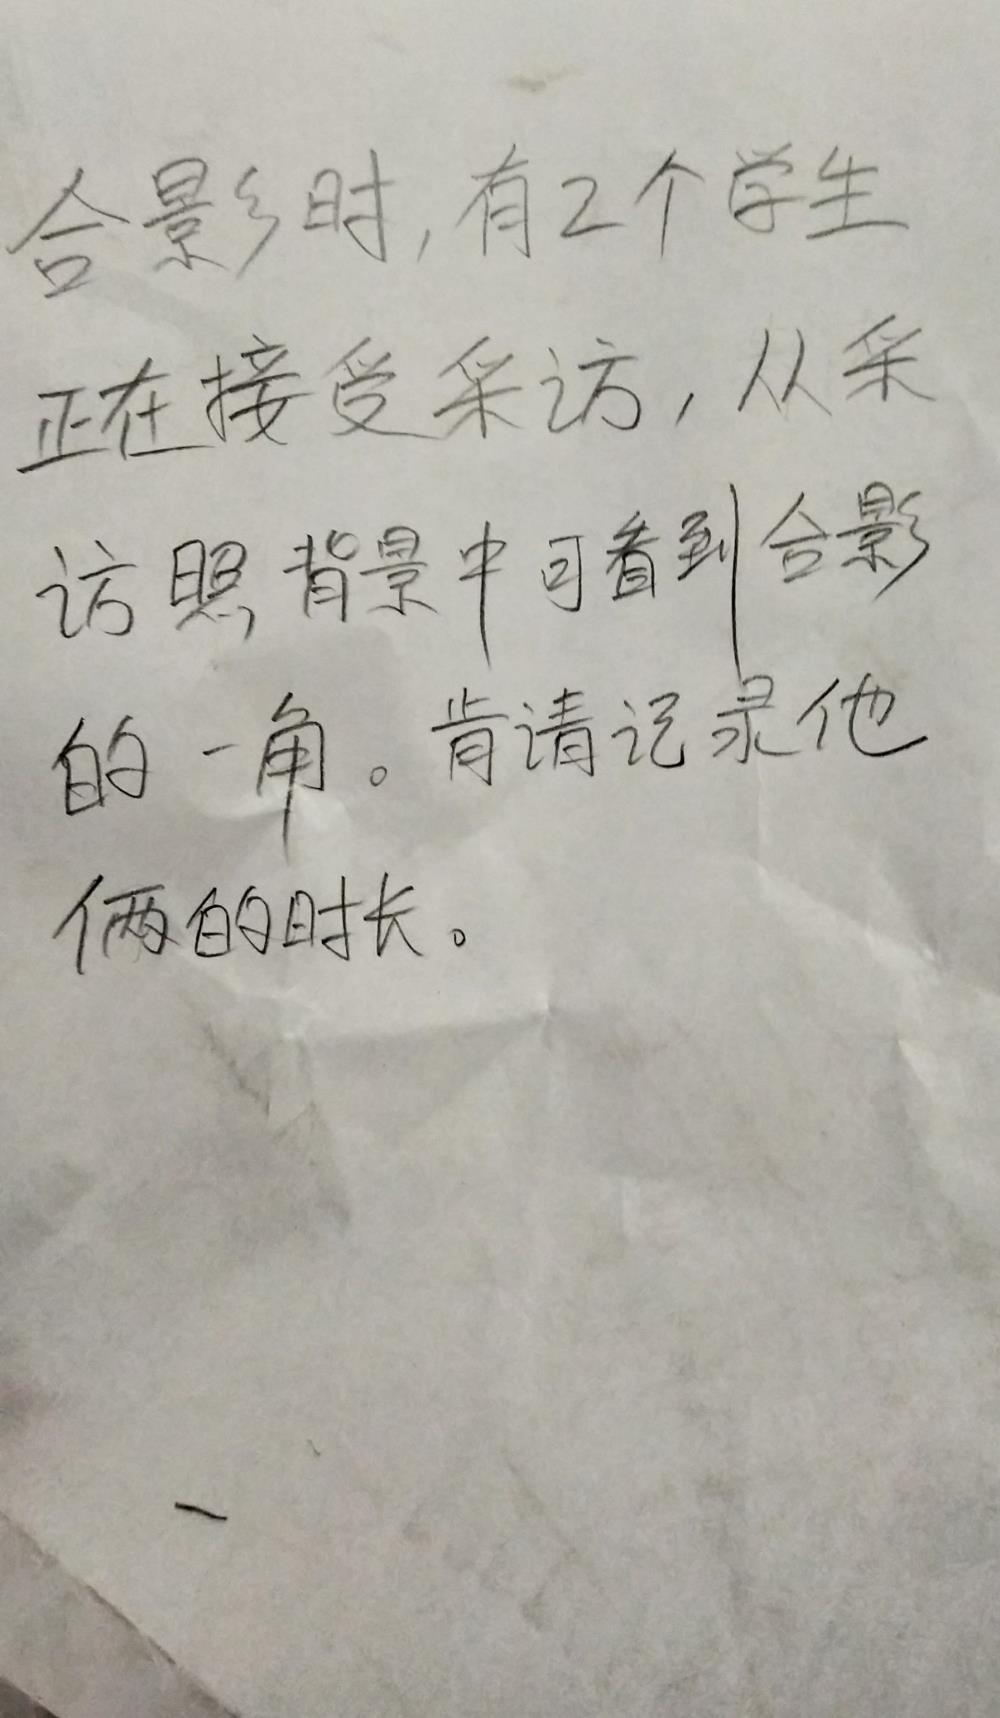 合影时,有2个学生
正在接受采访,从采
访照背景中可看到合影
的一角。肯请记录他
俩的时长。